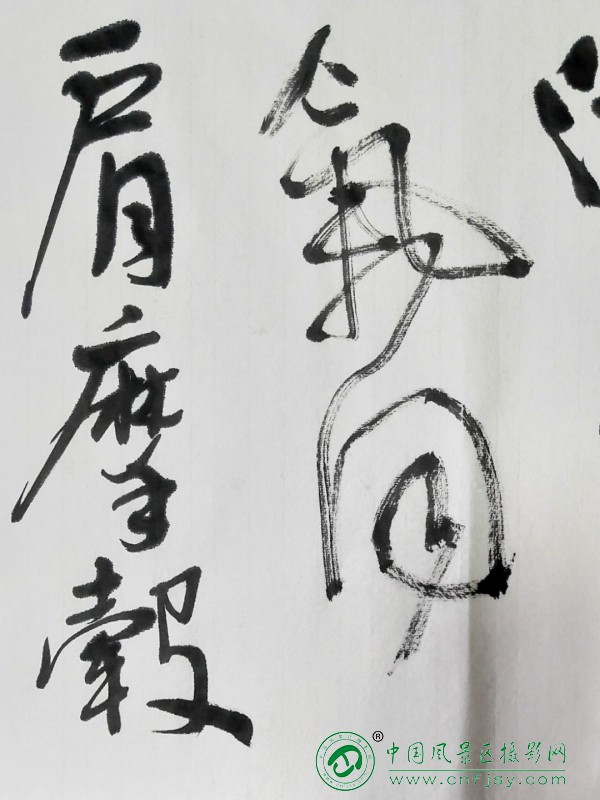 氣
肩摩轂
®
中国风景区摄影网
www.cnfjsy.com